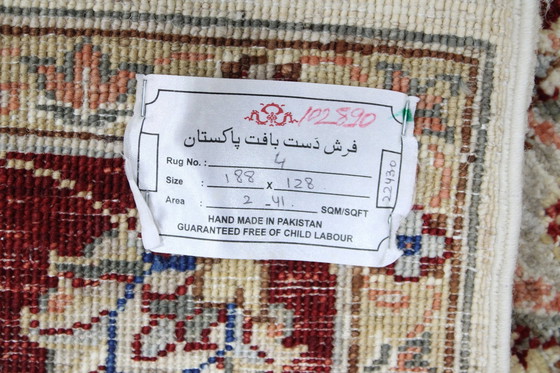 102890
فرش دَست بافت پاکستان
Rug No.: 4
Size : 188 x 128
Area : 2-41 SQM/SQFT
22430
HAND MADE IN PAKISTAN
GUARANTEED FREE OF CHILD LABOUR